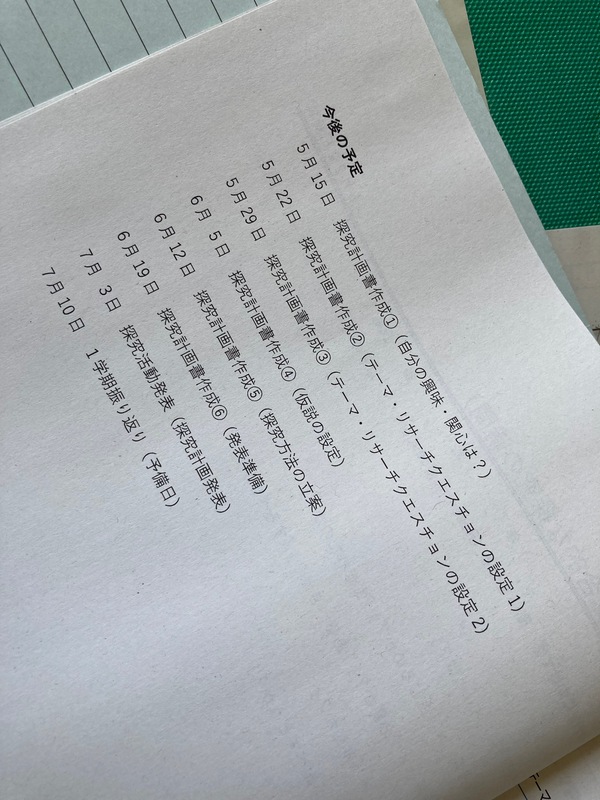 今後の予定
5月15日 探究計画書作成①（自分の興味・関心は？）
5月22日 探究計画書作成②（テーマ・リサーチクエスチョンの設定1）
5月29日 探究計画書作成③（テーマ・リサーチクエスチョンの設定2）
6月 5日 探究計画書作成④（仮説の設定）
6月12日 探究計画書作成⑤（探究方法の立案）
6月19日 探究計画書作成⑥（発表準備）
7月 3日 探究活動発表（探究計画発表）
7月10日 1学期振り返り（予備日）
テーマ